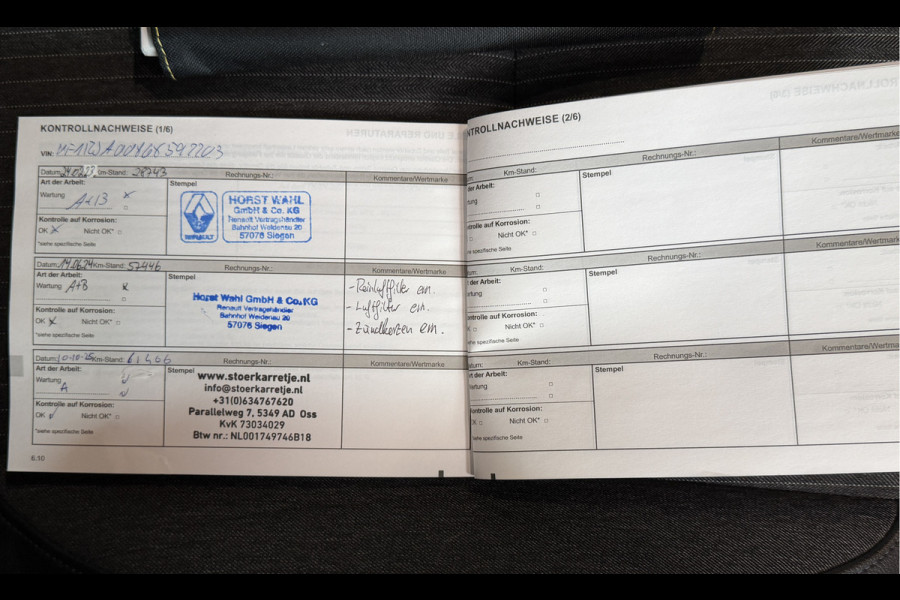 KONTROLLNACHWEISE (1/6)
VIN:
Datum: Km-Stand: 28743 Rechnungs-Nr.: Kommentare/Wertmarke
Art der Arbeit: Stempel
Wartung A+B x
Kontrolle auf Korrosion:
OK x Nicht OK*
*siehe spezifische Seite
RENAULT
HORST WAHL
GmbH & Co. KG
Renault Vertragshändler
Bahnhof Weidenau 20
57076 Siegen
Datum: 14.06.24 Km-Stand: 52446 Rechnungs-Nr.: Kommentare/Wertmarke
Art der Arbeit: Stempel
Wartung A+B x
Kontrolle auf Korrosion:
OK x Nicht OK*
*siehe spezifische Seite
Horst Wahl GmbH & Co. KG
Renault Vertragshändler
Bahnhof Weidenau 20
57076 Siegen
- Reinluftfilter ern.
- Luftfilter ern.
- Zündkerzen ern.
Datum: 10-10-25 Km-Stand: 61466 Rechnungs-Nr.: Kommentare/Wertmarke
Art der Arbeit: Stempel
Wartung
A
Kontrolle auf Korrosion:
OK Nicht OK*
*siehe spezifische Seite
www.stoerkarretje.nl
info@stoerkarretje.nl
+31(0)634767620
Parallelweg 7, 5349 AD Oss
KvK 73034029
Btw nr.: NL001749746B18
6.10
NTROLLNACHWEISE (2/6)
um: Km-Stand: Rechnungs-Nr.: Kommentare/Wertmarke
der Arbeit: Stempel
tung
trolle auf Korrosion:
Nicht OK*
he spezifische Seite
tum: Km-Stand: Rechnungs-Nr.: Kommentare/Wertmarke
t der Arbeit: Stempel
artung
ontrolle auf Korrosion:
K Nicht OK*
iehe spezifische Seite
atum: Km-Stand: Rechnungs-Nr.: Kommentare/Wertma
rt der Arbeit: Stempel
Wartung
Kontrolle auf Korrosion:
OK Nicht OK*
*siehe spezifische Seite